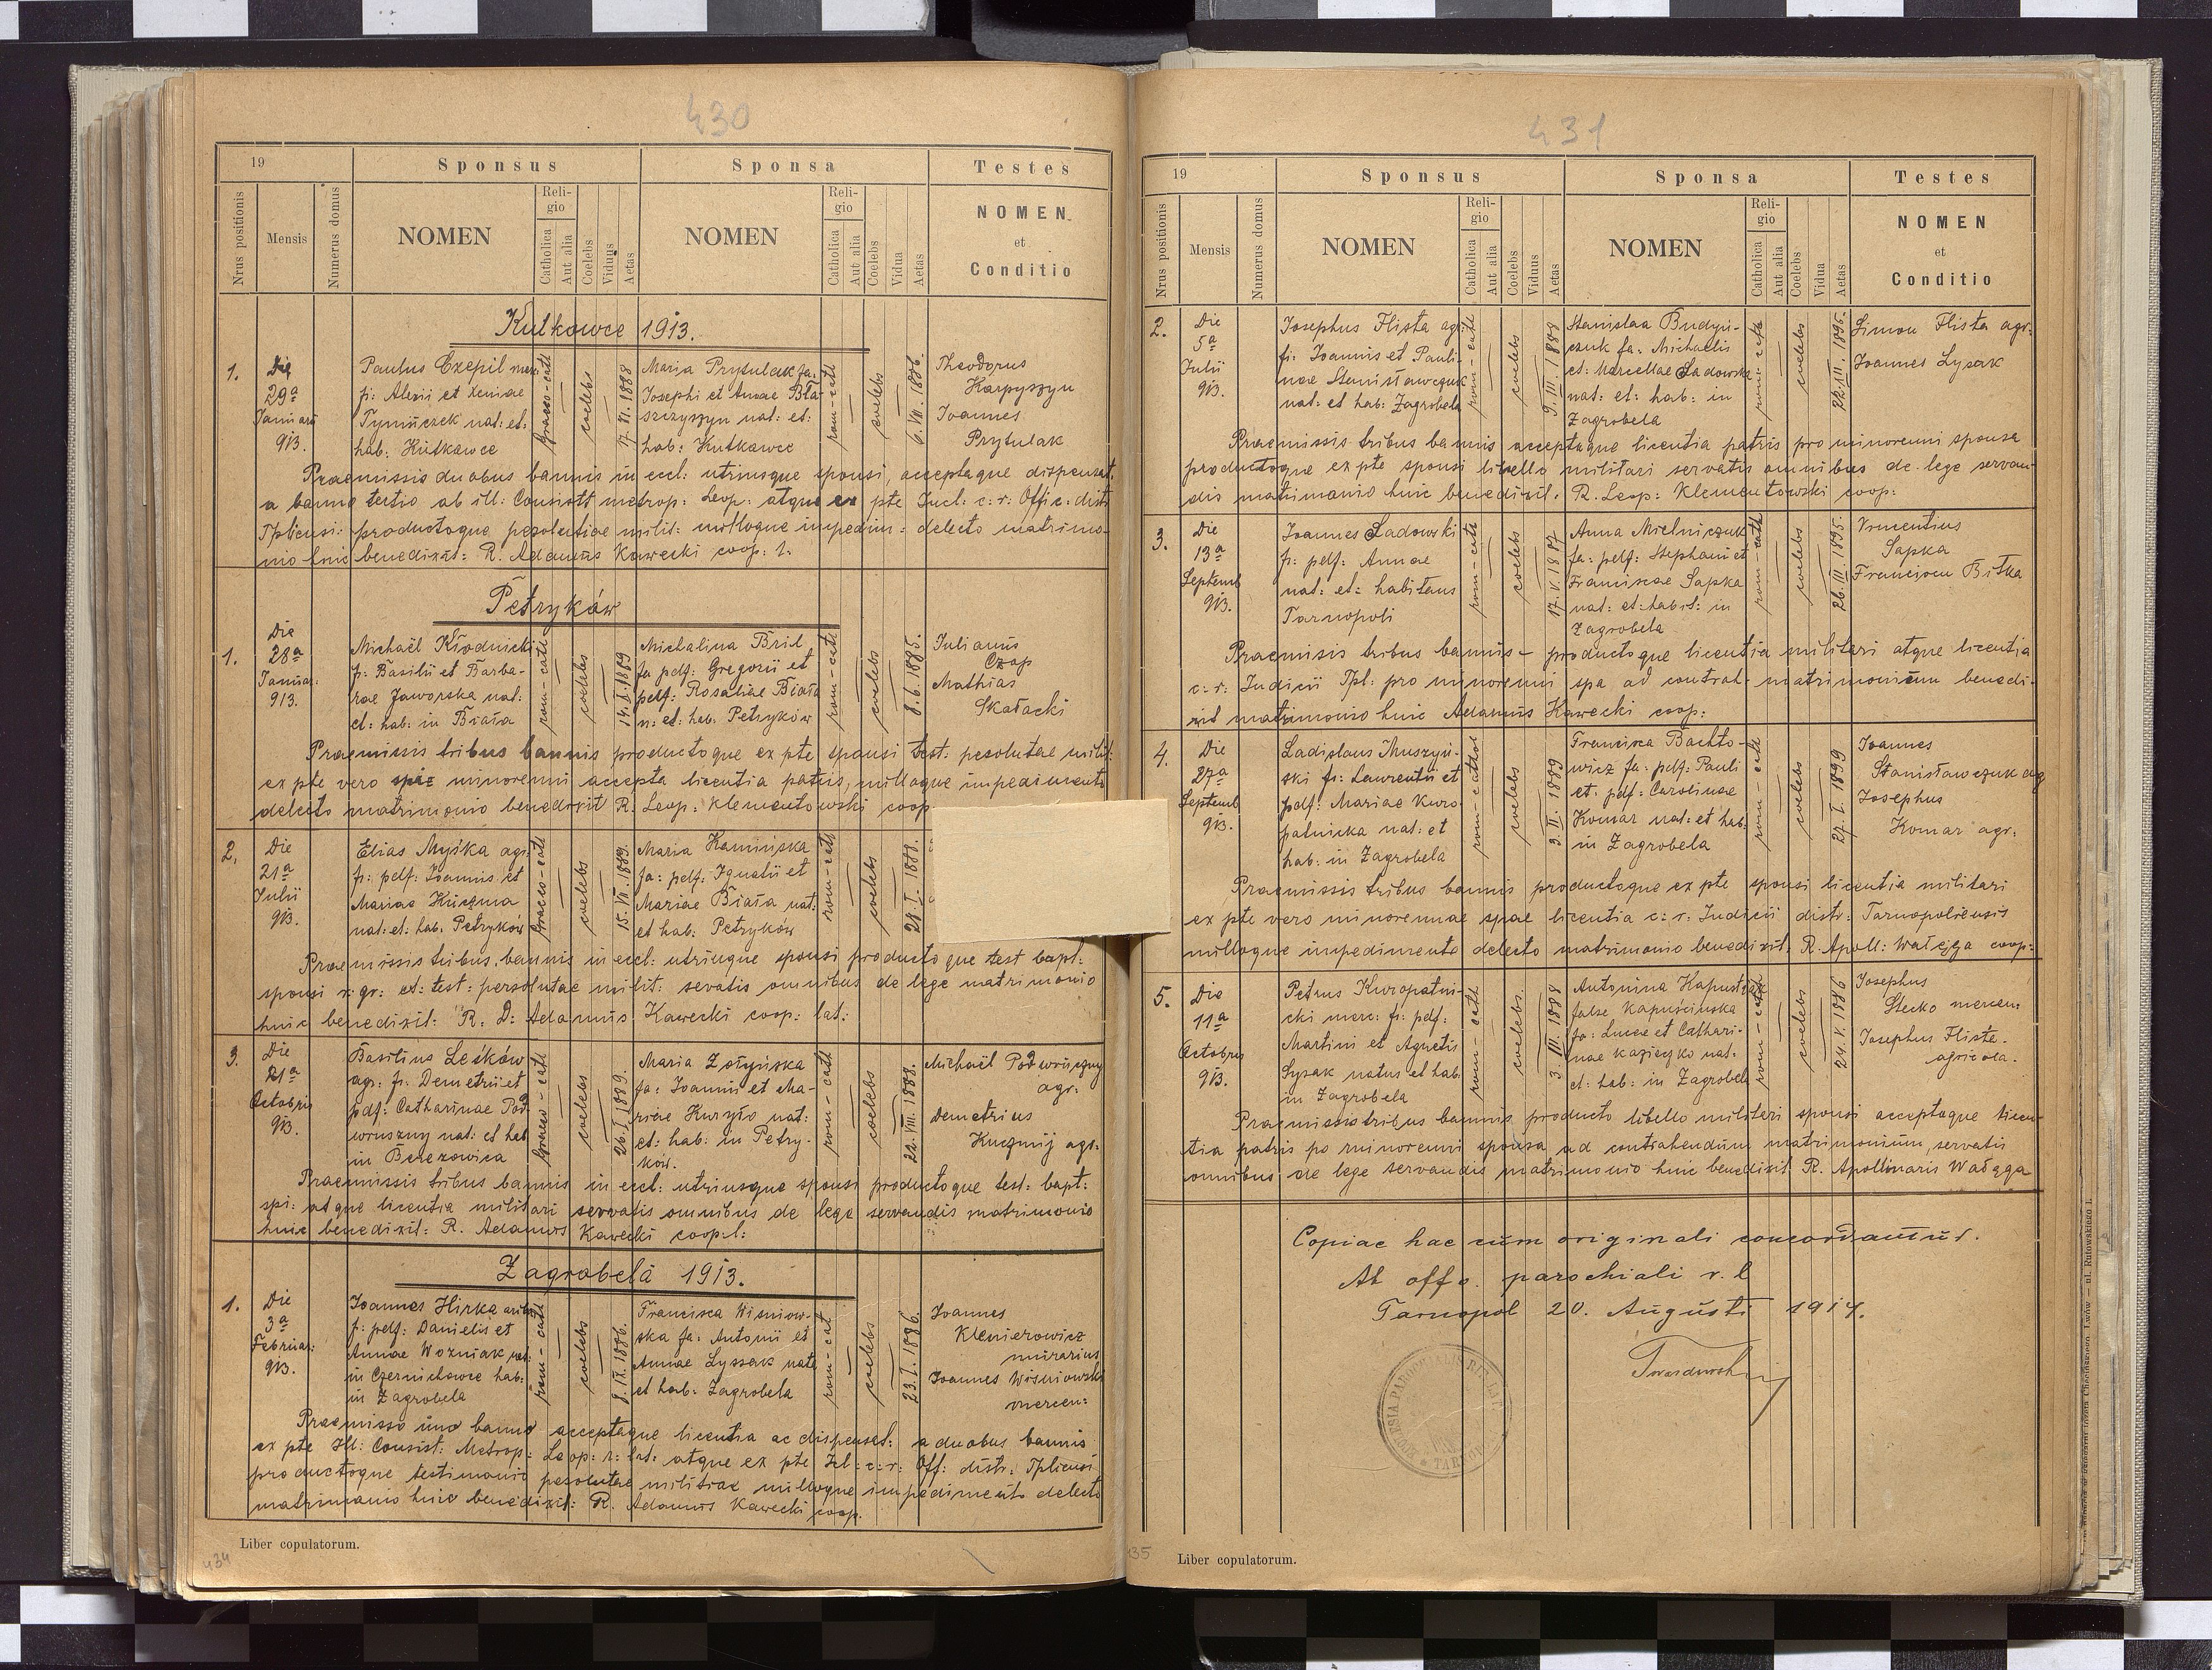 430
19 Sponsus Sponsa Testes
Nrus positionis Mensis Numerus domus NOMEN Religio Catholica Aut alia Coelebs Viduus Aetas NOMEN Religio Catholica Aut alia Coelebs Vidua Aetas NOMEN et Conditio
Kutkowce 1913.
1.
Die
29a
Januarii
913.
Paulus Czepil mer.
f: Alexii et Xeniae
Tymiczek nat: et:
hab: Kutkowce
graeco-cath
coelebs
17. VI. 1888
Maria Prytulak fa:
Josephi et Annae Bła-
szczyszyn nat: et:
hab: Kutkowce
rom-cath
coelebs
6. VII. 1886.
Theodorus
Karpyszyn
Joannes
Prytulak
Praemissis duobus bannis in eccl: utriusque sponsi, acceptaque dispensat.
a banno tertio ab ill: Consistt metrop: Leop: atque ex pte Incl: c: r: Offic: distr
Tplicensi: productoque persolutae milit: nulloque impedim: detecto matrimo-
nio huic benedixit: R. Adamus Kawecki coop: l.
Petryków
1.
Die
28a
Januar:
913.
Michaël Kłodnicki
f: Basilii et Barba-
rae Jaworska nat:
et: hab: in Biała
rom-cath
coelebs
14. I. 1889
Michalina Bril
fa pdf: Gregorii et
pdf: Rosaliae Biała
n: et: hab. Petryków
rom-cath
coelebs
8. 6. 1895.
Julianus
Czop
Mathias
Skałacki
Praemissis tribus bannis productoque ex pte sponsi test: persolutae milit:
ex pte vero spae minorenni accepta licentia patris, nulloque impedimento
detecto matrimonio benedixit R. Leop: Klementowski coop
2.
Die
21a
Julii
913.
Elias Myśka agr:
f: pdf: Joannis et
Mariae Kuczma
nat: et: hab. Petryków
graeco-cath
coelebs
15. VII. 1889.
Maria Kamińska
fa: pdf: Ignatii et
Mariae Biała nat:
et hab: Petryków
rom-cath
coelebs
28. I. 1889.
Praemissis tribus bannis in eccl: utriuque sponsi producto que test bapt:
sponsi r. gr: et: test: persolutae milit: sevatis omnibus de lege matrimonio
huic benedixit: R. D: Adamus Kawecki coop: lat:
3
Die
21a
Octobris
913.
Basilius Leśków
agr: f: Demetrii et
pdf: Catharinae Pod
woruszny nat: et hab
in Berezowica
graeco-cath
coelebs
26. I. 1889.
Maria Zołyńska
fa: Joannis et Ma-
riae Kuryło nat:
et: hab: in Petry-
ków.
rom-cath
coelebs
22. VIII. 1888.
Michaël Podworuszny
agr.
Demetrius
Kuczmij agr:
Praemissis tribus bannis in eccl: utriusque sponsi productoque test: bapt:
spi: atque licentia militari servatis omnibus de lege servandis matrimonio
huic benedixit: R. Adamus Kawecki coop. l:
Zagrobela 1913.
1.
Die
3a
Februar:
913.
Joannes Hirka
f: pdf: Danielis et
Annae Wozniak nat:
in Czernichowce hab:
in Zagrobela
rom-cath
coelebs
8. IX. 1886.
Francisca Wisniow-
ska fa: Antonii et
Annae Lyssak nata
et hab: Zagrobela
rom-cat
coelebs
23. I. 1886.
Joannes
Klemerowicz
murarius
Joannes Wisniowski
mercen:
Praemisso uno banno acceptaque licentia ac dispensat: a duobus bannis
ex pte Ill: Consist: Metrop: Leop: r: lat: atque ex pte Icl: c: r: Off: distr: Tplicensi
productoque testimonio persolutae militiae nulloque impedimento detecto
matrimonio huic benedixit: R. Adamus Kawecki coop.
Liber copulatorum.
434
431
19 Sponsus Sponsa Testes
Nrus positionis Mensis Numerus domus NOMEN Religio Catholica Aut alia Coelebs Viduus Aetas NOMEN Religio Catholica Aut alia Coelebs Vidua Aetas NOMEN et Conditio
2.
Die
5a
Julii
913.
Josephus Flista agr:
fi: Joannis et Pauli-
nae Stanisławczuk
nat: et hab: Zagrobela
rom-cath
coelebs
9. III. 1888
Stanislaa Budyń-
czuk fa: Michaelis
et: Marcellae Sadowska
nat: et: hab: in
Zagrobela
rom-cath
coelebs
Simon Flista agr:
Joannes Lysak
Praemissis tribus bannis acceptaque licentia patris pro minorenni sponsa
productoque ex pte sponsi libello militari servatis omnibus de lege servan-
dis matrimonio huic benedixit. R. Leop: Klementowski coop:
3.
Die
13a
Septemb
913.
Joannes Sadowski
f: pdf: Annae
nat: et: habitans
Tarnopoli
rom-cath
coelebs
17. V. 1887
Anna Mielniczuk
fa: pdf: Stephani et
Franciscae Sapka
nat: et: habit: in
Zagrobela
rom-cath
coelebs
26. III. 1895.
Vincentius
Sapka
Franciscu Bitka
Praemisis tribus bannis - productoque licentia militari atque licentia
c: r: Judicii Tpl: pro minorenni spa ad contrah- matrimonium benedi-
xit matrimonio huic Adamus Kawecki coop:
4.
Die
27a
Septemb
913.
Ladislaus Muszyń-
ski f: Laurentii et
pdf: Mariae Kuro-
patnicka nat: et
hab: in Zagrobela
rom-cathol
coelebs
3. II. 1889
Francisca Bachto-
wicz fa: pdf: Pauli
et: pdf: Carolinae
Komar nat: et hab:
in Zagrobela
rom-cath
coelebs
27. I. 1899
Joannes
Stanisławczuk agr
Josephus
Komar agr:
Praemissis tribus bannis productoque ex pte sponsi licentia militari
ex pte vero minorennae spae licentia c: r: Judicii distr: Tarnopoliensis
nulloque impedimento detecto matrimonio benedixit. R. Apoll: Wałęga coop:
5.
Die
11a
Octobris
913.
Petrus Kuropatni-
cki merc: f: pdf:
Martini et Agnetis
Lysak natus et hab:
in Zagrobela
rom-cath
coelebs.
3. III. 1888
Antonina Kapustzak
false Kapuścińska
fa: Lucae et Cathari-
nae Kaziczko nat:
et: hab: in Zagrobela
rom-cath
coelebs
24. V. 1886
Josephus
Stecko mercen:
Josephus Flista
agricola.
Praemissis tribus bannis producto libello militari sponsi acceptaque licen-
tia patris po minorenni sponsa ad contrahendum matrimonium, servatis
omnibus de lege servandis matrimonio huic benedixit R. Apollinaris Wałęga
Copiae hae cum originali concordantur.
Ab offo. parochiali r. l
Tarnopol 20. Augusti 1914.
Twardowski
Liber copulatorum.